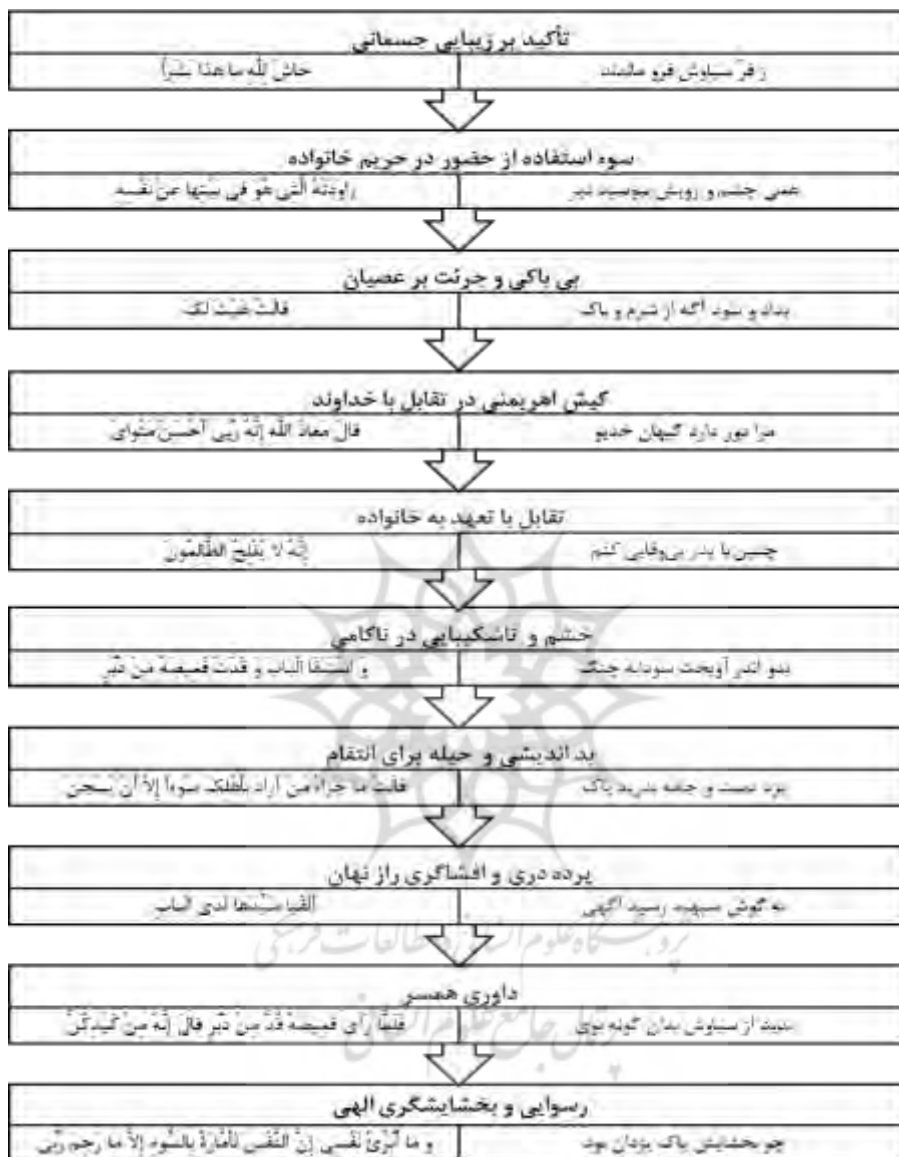 تأکید بر زیبایی جسمانی
ز فرّ سیاوش فرو ماندند
حاشَ لِلّهِ ما هذا بَشَراً
سوء استفاده از حضور در حریم خانواده
همی چشم و رویش ببوسید دیر
راوَدَتْهُ الَّتی هُوَ فی بَیْتِها عَنْ نَفْسِه
بی باکی و جرئت بر عصیان
بداد و نبود آگه از شرم و باک
قالَتْ هَیْتَ لَکَ
کیش اهریمنی در تقابل با خداوند
مرا دور دارد گیهان خدیو
قالَ مَعاذَ اللّهِ إِنَّهُ رَبّی أَحْسَنَ مَثْوایَ
تقابل با تعهد به خانواده
چنین با پدر بی‌وفایی کنم
إِنَّهُ لا یُفْلِحُ الظّالِمُونَ
خشم و ناشکیبایی در ناکامی
بدو اندر آویخت سودابه چنگ
و اسْتَبَقَا الْبابَ و قَدَّتْ قَمیصَهُ مِنْ دُبُرٍ
بد اندیشی و حیله برای انتقام
بزد دست و جامه بدرید پاک
قالَتْ ما جَزاءُ مَنْ أَرادَ بِأَهْلِکَ سُوءاً إِلاّ أَنْ یُسْجَنَ
پرده دری و افشاگری راز نهان
به گوش سپهبد رسید آگهی
أَلْفَیا سَیِّدَها لَدَی الْبابِ
پژوهشگاه علوم انسانی و مطالعات فرهنگی
داوری همسر
ندید از سیاوش بدان گونه بوی
فَلَمّا رَأی قَمیصَهُ قُدَّ مِنْ دُبُرٍ قالَ إِنَّهُ مِنْ کَیْدِکُنَّ
پرتال جامع علوم انسانی
رسوایی و بخشایشگری الهی
چو بخشایش پاک یزدان بود
و ما أُبَرِّئُ نَفْسی إِنَّ النَّفْسَ لَأَمّارَةٌ بِالسُّوءِ إِلاّ ما رَحِمَ رَبّی